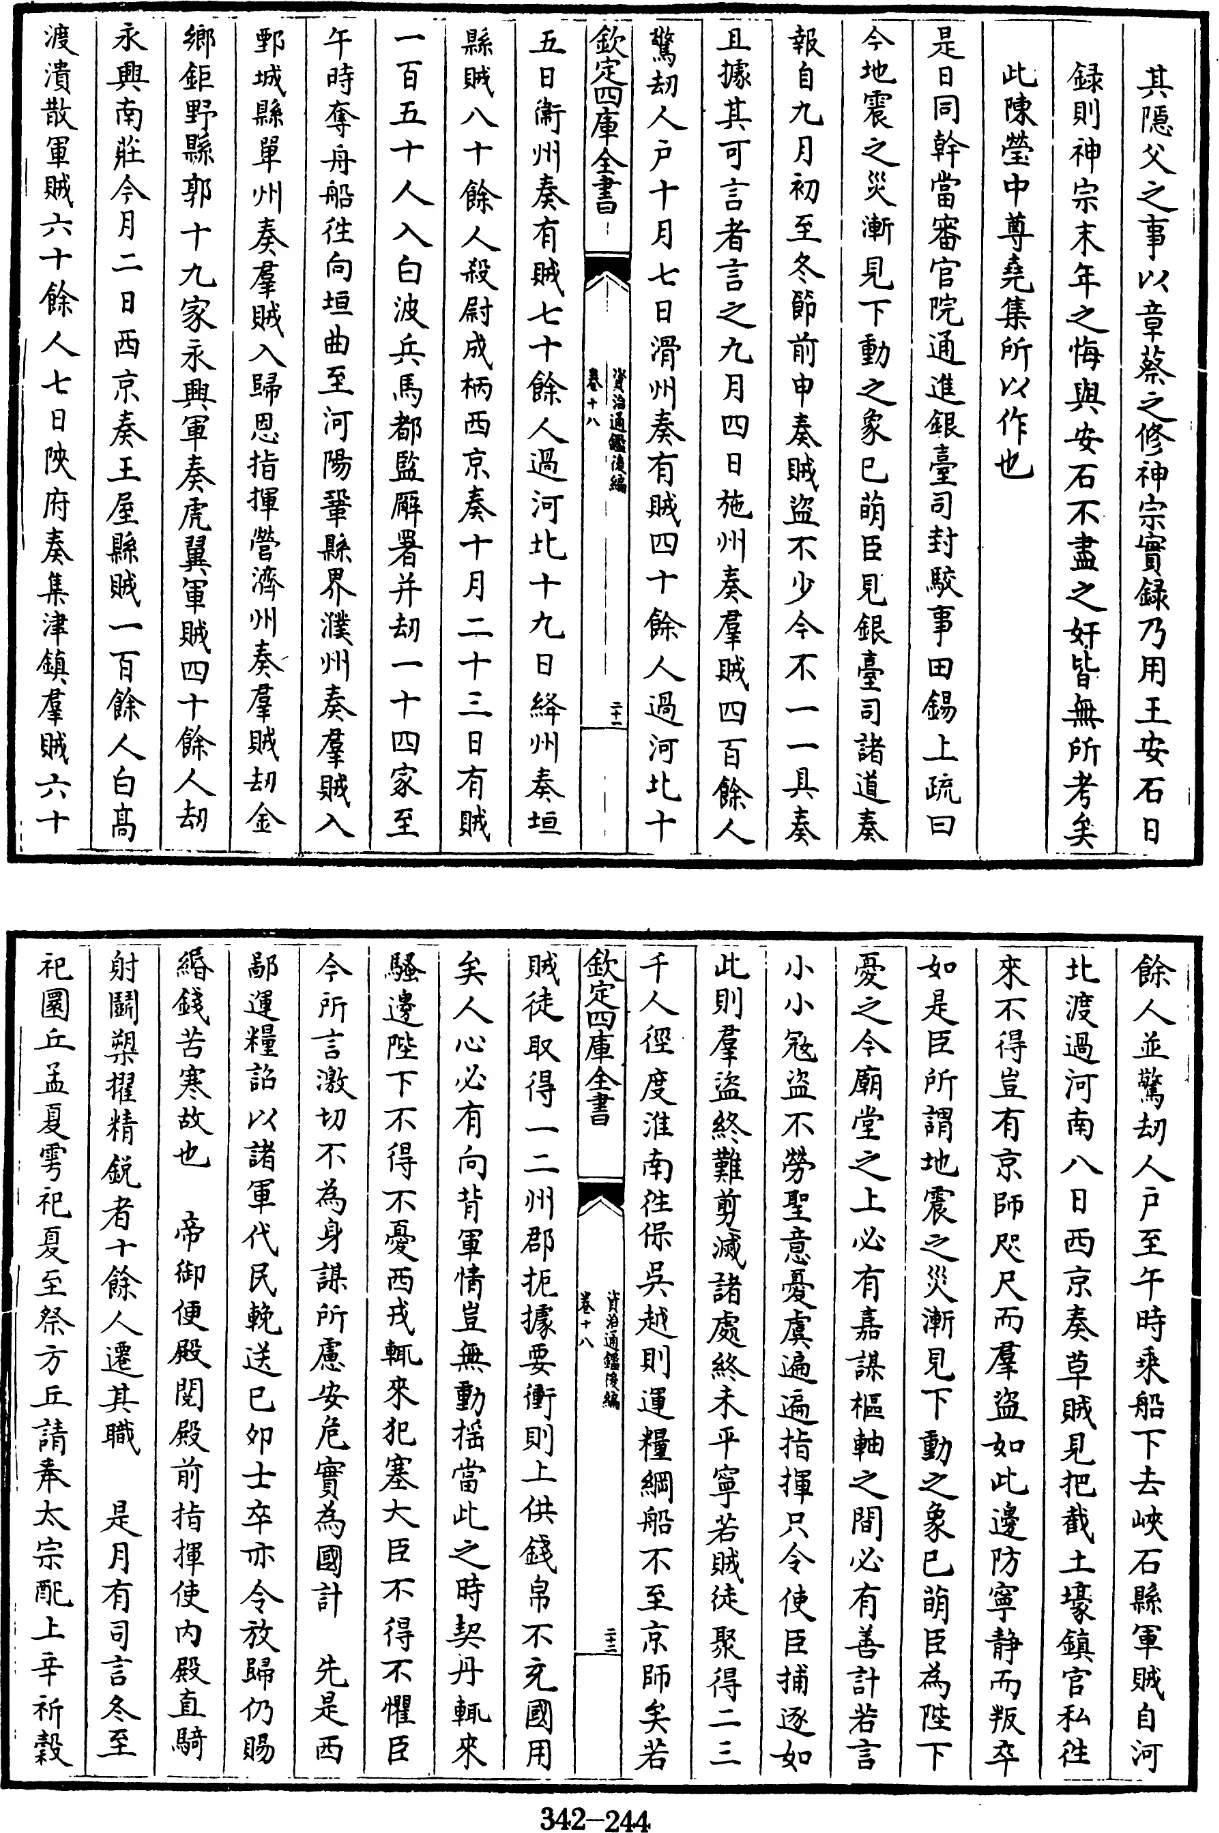 其隱父之事以章蔡之修神宗實録乃用王安石日
録則神宗末年之悔與安石不盡之奸皆無所考矣
此陳瑩中尊堯集所以作也
是日同幹當審官院通進銀臺司封駮事田錫上疏曰
今地震之災漸見下動之象已萌臣見銀臺司諸道奏
報自九月初至冬節前申奏賊盗不少今不一一具奏
且據其可言者言之九月四日施州奏羣賊四百餘人
驚刼人户十月七日滑州奏有賊四十餘人過河北十
欽定四庫全書
資治通鑑後編
卷十八
二十二
五日衞州奏有賊七十餘人過河北十九日絳州奏垣
縣賊八十餘人殺尉成柄西京奏十月二十三日有賊
一百五十人入白波兵馬都監廨署并刼一十四家至
午時奪舟船徃向垣曲至河陽鞏縣界濮州奏羣賊入
鄄城縣單州奏羣賊入歸恩指揮營濟州奏羣賊刼金
鄉鉅野縣郭十九家永興軍奏虎翼軍賊四十餘人刼
永興南莊今月二日西京奏王屋縣賊一百餘人白高
渡潰散軍賊六十餘人七日陜府奏集津鎮羣賊六十
餘人並驚刼人户至午時乗船下去峽石縣軍賊自河
北渡過河南八日西京奏草賊見把截土壕鎮官私徃
來不得豈有京師咫尺而羣盗如此邊防寧静而叛卒
如是臣所謂地震之災漸見下動之象已萌臣為陛下
憂之今廟堂之上必有嘉謀樞軸之間必有善計若言
小小冦盗不勞聖意憂虞遍遍指揮只令使臣捕逐如
此則羣盗終難剪滅諸處終未平寧若賊徒聚得二三
千人徑度淮南徃保吳越則運糧綱船不至京師矣若
欽定四庫全書
資治通鑑後編
卷十八
二十三
賊徒取得一二州郡扼據要衝則上供錢帛不充國用
矣人心必有向背軍情豈無動摇當此之時契丹輒來
騷邊陛下不得不憂西戎輒來犯塞大臣不得不懼臣
今所言激切不為身謀所慮安危實為國計　先是西
鄙運糧詔以諸軍代民輓送已夘士卒亦令放歸仍賜
緡錢苦寒故也　帝御便殿閲殿前指揮使内殿直騎
射鬭槊擢精鋭者十餘人遷其職　是月有司言冬至
祀圜丘孟夏雩祀夏至祭方丘請奉太宗配上辛祈穀
342-244